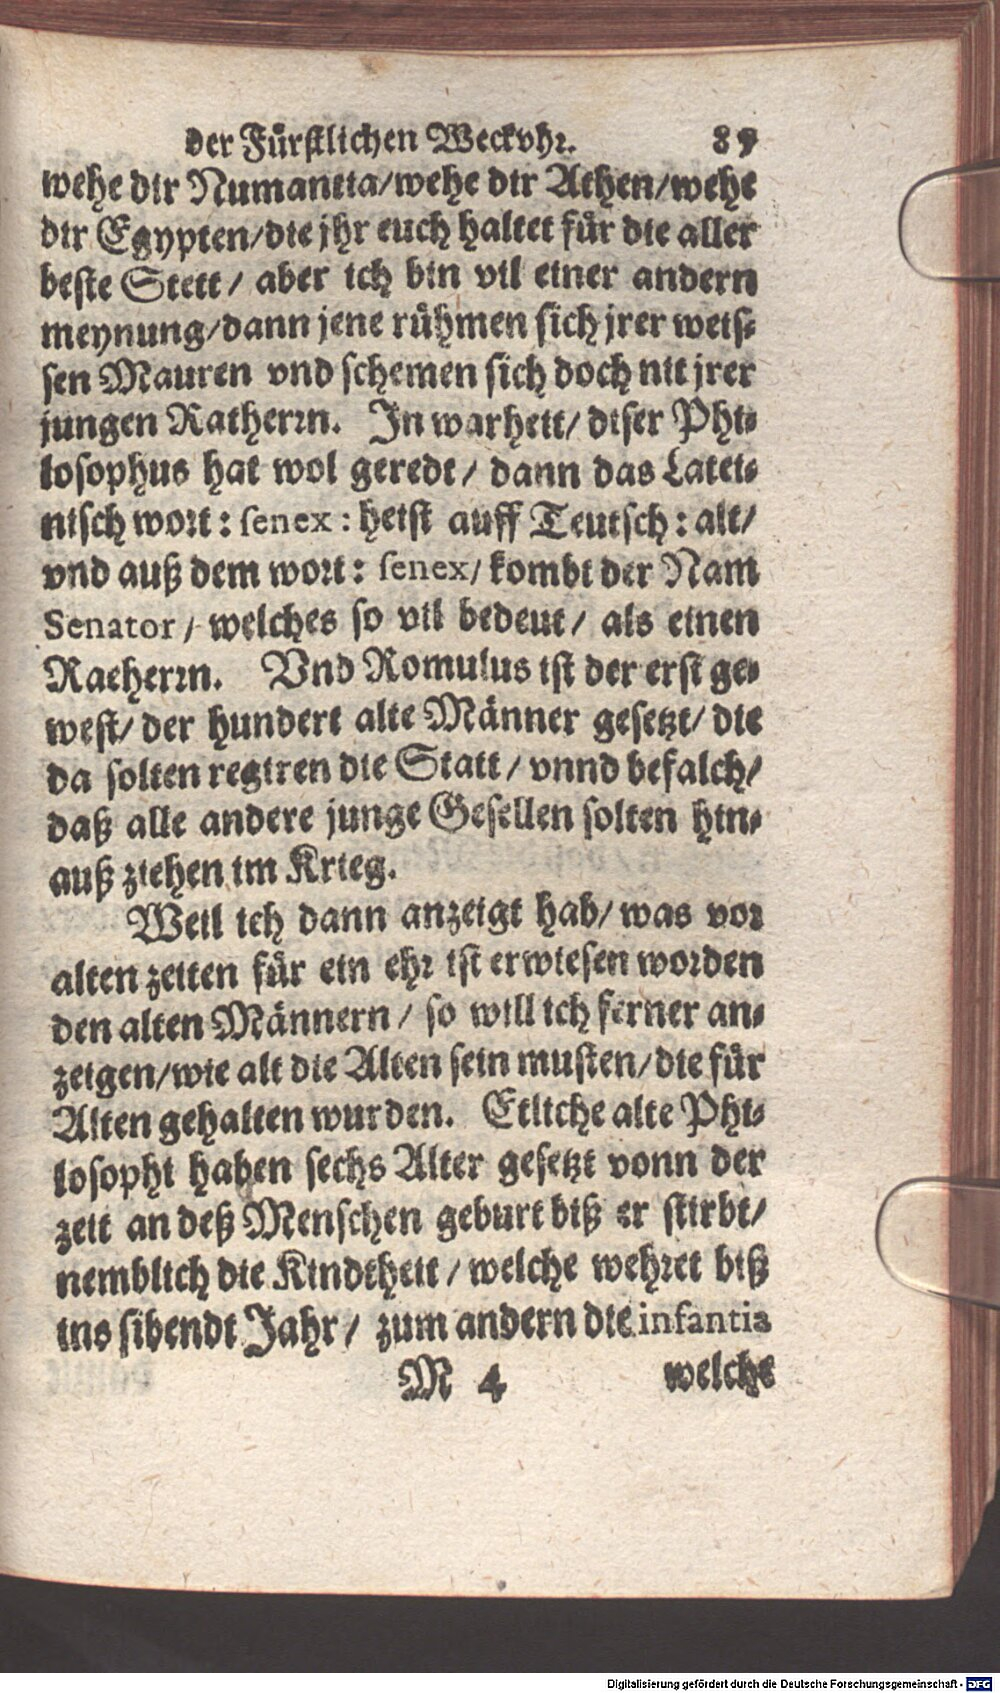 der Fürstlichen Weckvhr. 89
wehe dir Numantia/wehe dir Athen/wehe
dir Egypten/die jhr euch haltet für die aller
beste Stett/ aber ich bin vil einer andern
meynung/dann jene rühmen sich jrer weis-
sen Mauren vnd schemen sich doch nit jrer
jungen Ratherrn. In warheit/ diser Phi-
losophus hat wol geredt/ dann das Latei-
nisch wort: senex: heist auff Teutsch: alt/
vnd auß dem wort: senex/ kombt der Nam
Senator/ welches so vil bedeut/ als einen
Raeherrn. Vnd Romulus ist der erst ge-
west/ der hundert alte Männer gesetzt/ die
da solten regiren die Statt/ vnnd befalch/
daß alle andere junge Gesellen solten hin-
auß ziehen im Krieg.
Weil ich dann anzeigt hab/ was vor
alten zeiten für ein ehr ist erwiesen worden
den alten Männern/ so will ich ferner an-
zeigen/wie alt die Alten sein musten/die für
Alten gehalten wurden. Etliche alte Phi-
losophi haben sechs Alter gesetzt vonn der
zeit an deß Menschen geburt biß er stirbt/
nemblich die Kindtheit/ welche wehret biß
ins sibendt Jahr/ zum andern die infantia
M 4 welche
Digitalisierung gefördert durch die Deutsche Forschungsgemeinschaft - DFG